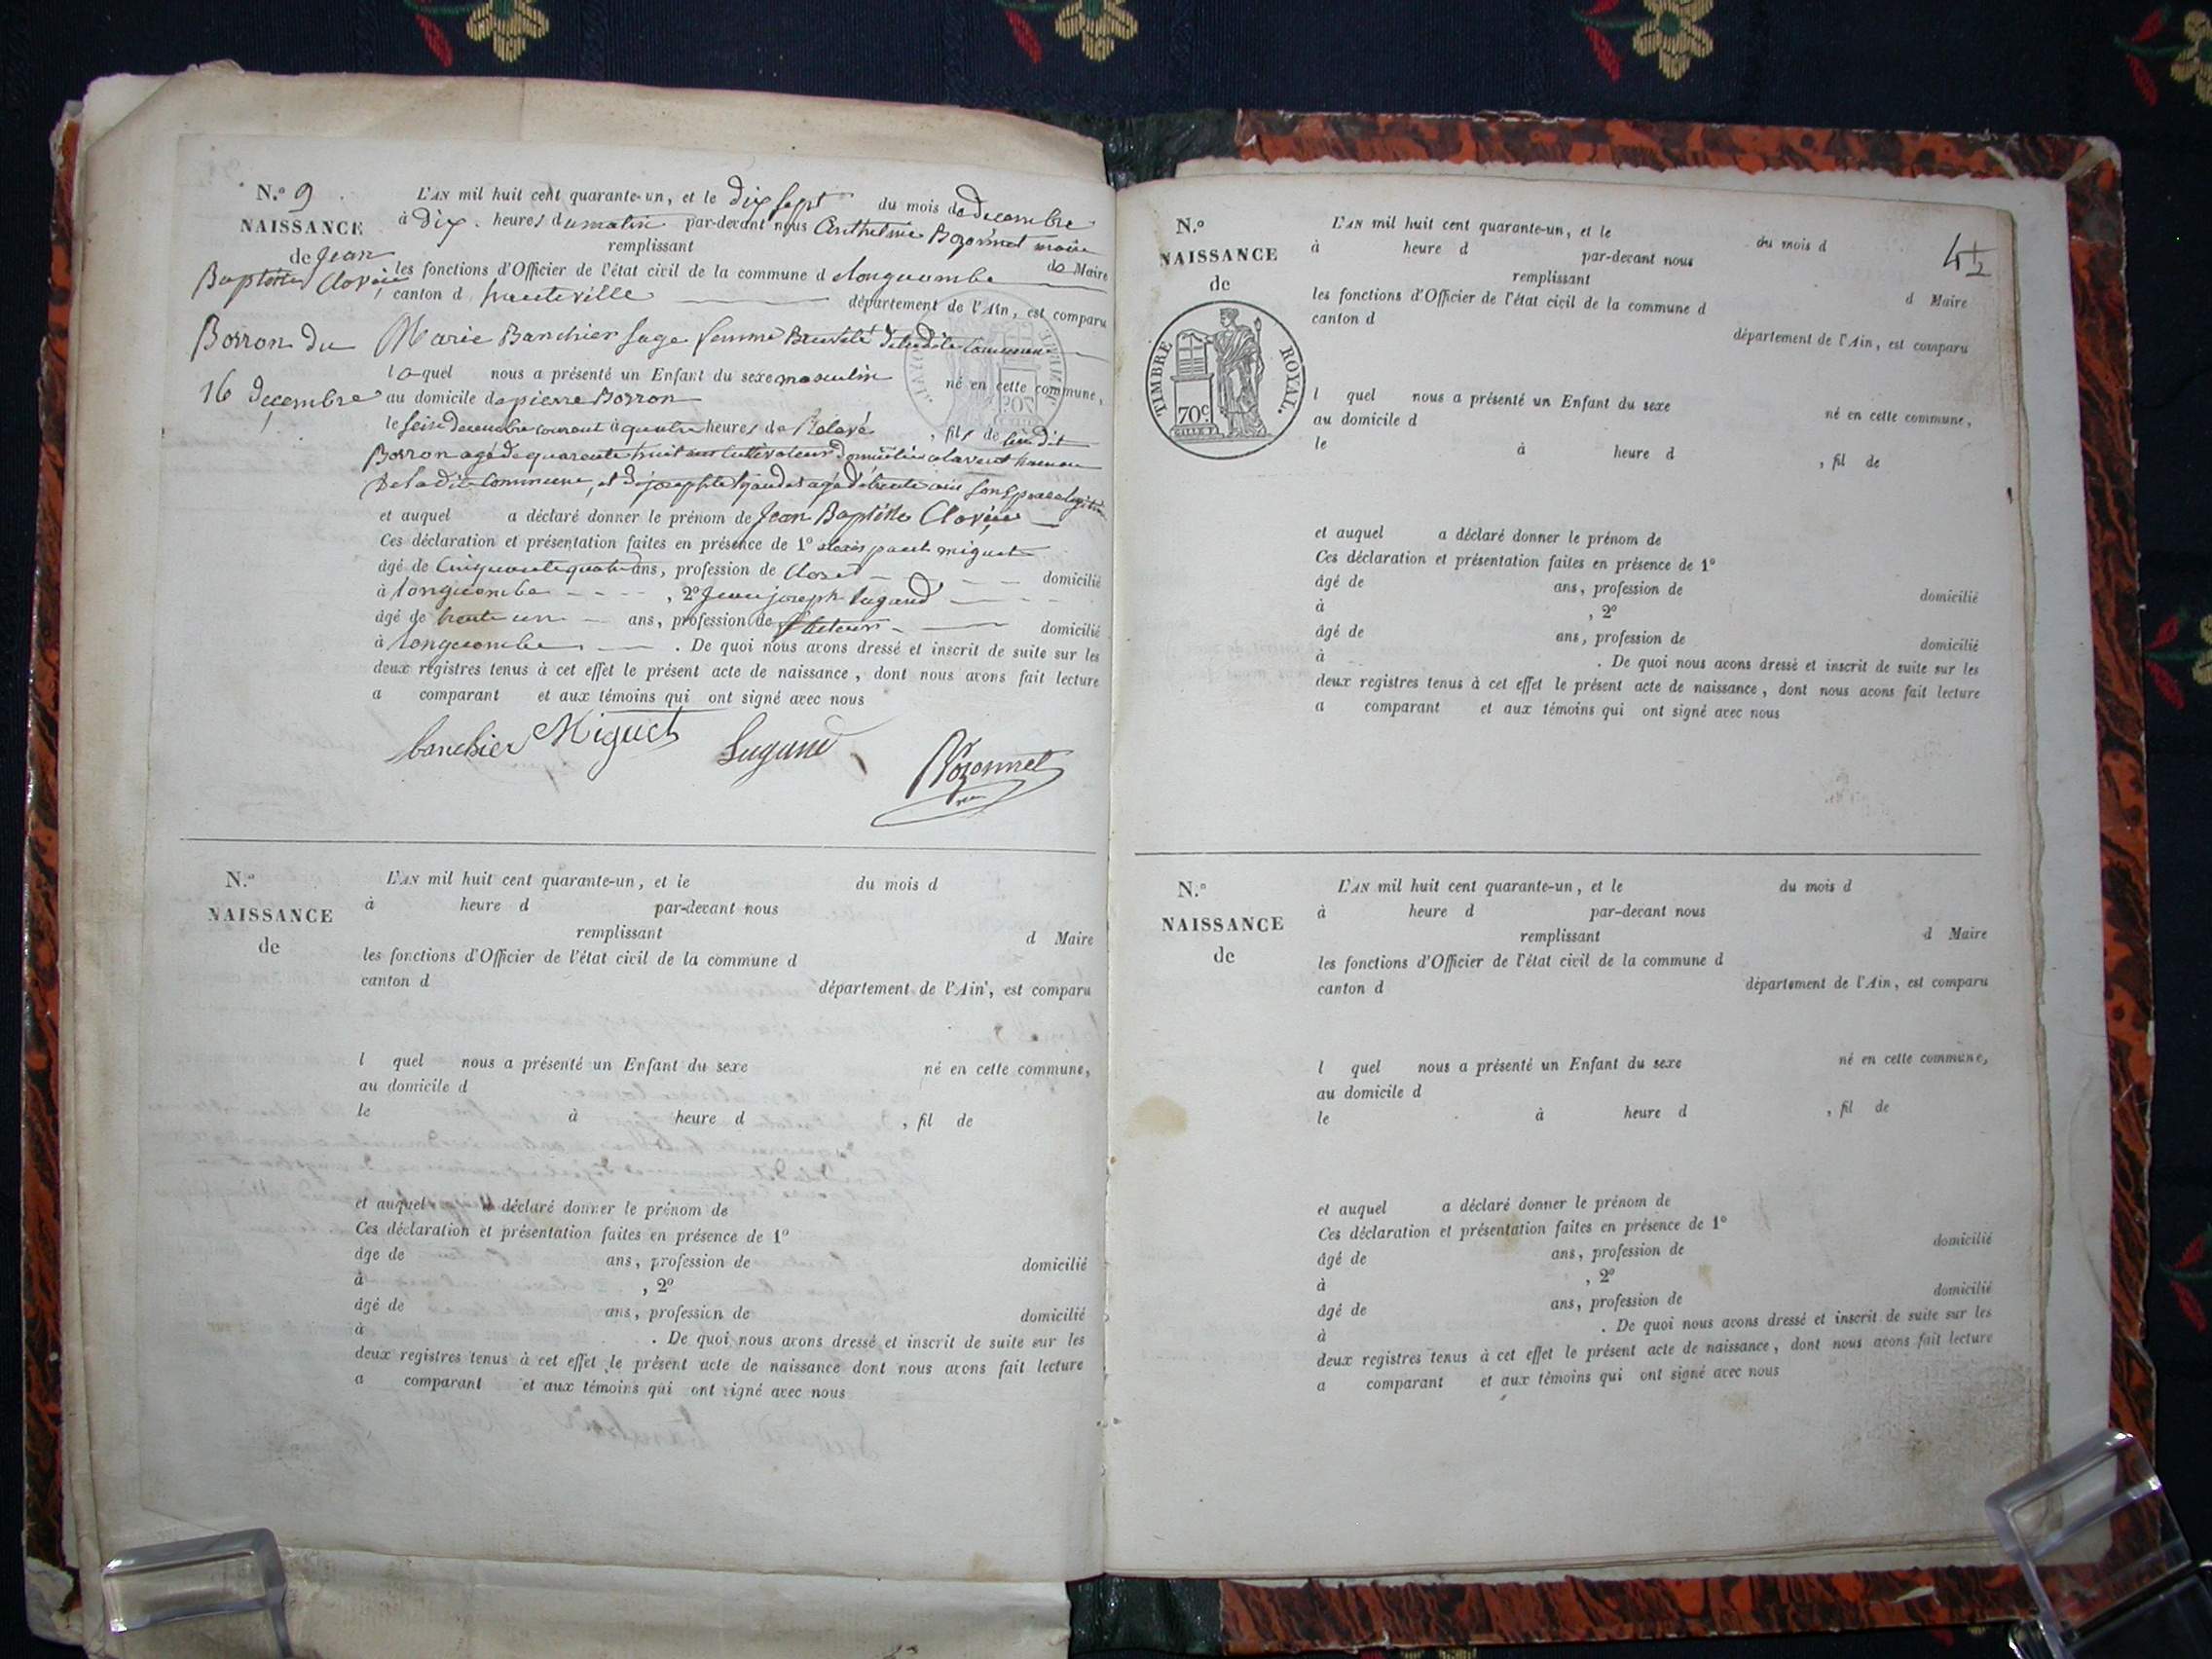 N.o 9
NAISSANCE
de Jean
Baptiste
Borron du
16 Decembre
L'AN mil huit cent quarante-un, et le dix sept du mois de decembre
à dix heures du matin par-devant nous Anthelme Bozonnet maire
remplissant
les fonctions d'Officier de l'état civil de la commune de longecombe de Maire
canton d hauteville département de l'Ain, est comparu
Marie Banchier sage femme Brevété de ladite Commune
laquel nous a présenté un Enfant du sexe masculin né en cette commune,
au domicile de pierre Borron
le seise decembre courant à quatre heures de , fils de
Borron agé de quarante huit ans Cultivateur domicilié a hameau
De la dite Commune, et de josephte agé de trente ans
et auquel a déclaré donner le prénom de Jean Baptiste
Ces déclaration et présentation faites en présence de 1o miguet
âgé de Cinquante quatre ans, profession de domicilié
à longecombe , 2o Jean joseph lugand
âgé de trente un ans, profession de domicilié
à longecombe . De quoi nous avons dressé et inscrit de suite sur les
deux registres tenus à cet effet le présent acte de naissance, dont nous avons fait lecture
a comparant et aux témoins qui ont signé avec nous
banchier Miguet Lugand Bozonnet
N.o
NAISSANCE
de
L'AN mil huit cent quarante-un, et le du mois d
à heure d par-devant nous
remplissant d Maire
les fonctions d'Officier de l'état civil de la commune d
canton d département de l'Ain, est comparu
l quel nous a présenté un Enfant du sexe né en cette commune,
au domicile d
le à heure d , fil de
et auquel a déclaré donner le prénom de
Ces déclaration et présentation faites en présence de 1o
âge de ans, profession de domicilié
à , 2o
âgé de ans, profession de domicilié
à . De quoi nous avons dressé et inscrit de suite sur les
deux registres tenus à cet effet le présent acte de naissance dont nous avons fait lecture
a comparant et aux témoins qui ont signé avec nous
N.o
NAISSANCE
de
TIMBRE ROYAL.
70c
L'AN mil huit cent quarante-un, et le du mois d
à heure d par-devant nous
remplissant
les fonctions d'Officier de l'état civil de la commune d d Maire
canton d département de l'Ain, est comparu
l quel nous a présenté un Enfant du sexe né en cette commune,
au domicile d
le à heure d , fil de
et auquel a déclaré donner le prénom de
Ces déclaration et présentation faites en présence de 1o
âgé de ans, profession de domicilié
à , 2o
âgé de ans, profession de domicilié
à . De quoi nous avons dressé et inscrit de suite sur les
deux registres tenus à cet effet le présent acte de naissance, dont nous avons fait lecture
a comparant et aux témoins qui ont signé avec nous
N.o
NAISSANCE
de
L'AN mil huit cent quarante-un, et le du mois d
à heure d par-devant nous
remplissant d Maire
les fonctions d'Officier de l'état civil de la commune d
canton d département de l'Ain, est comparu
l quel nous a présenté un Enfant du sexe né en cette commune,
au domicile d
le à heure d , fil de
et auquel a déclaré donner le prénom de
Ces déclaration et présentation faites en présence de 1o
âgé de ans, profession de domicilié
à , 2o
âgé de ans, profession de domicilié
à . De quoi nous avons dressé et inscrit de suite sur les
deux registres tenus à cet effet le présent acte de naissance, dont nous avons fait lecture
a comparant et aux témoins qui ont signé avec nous